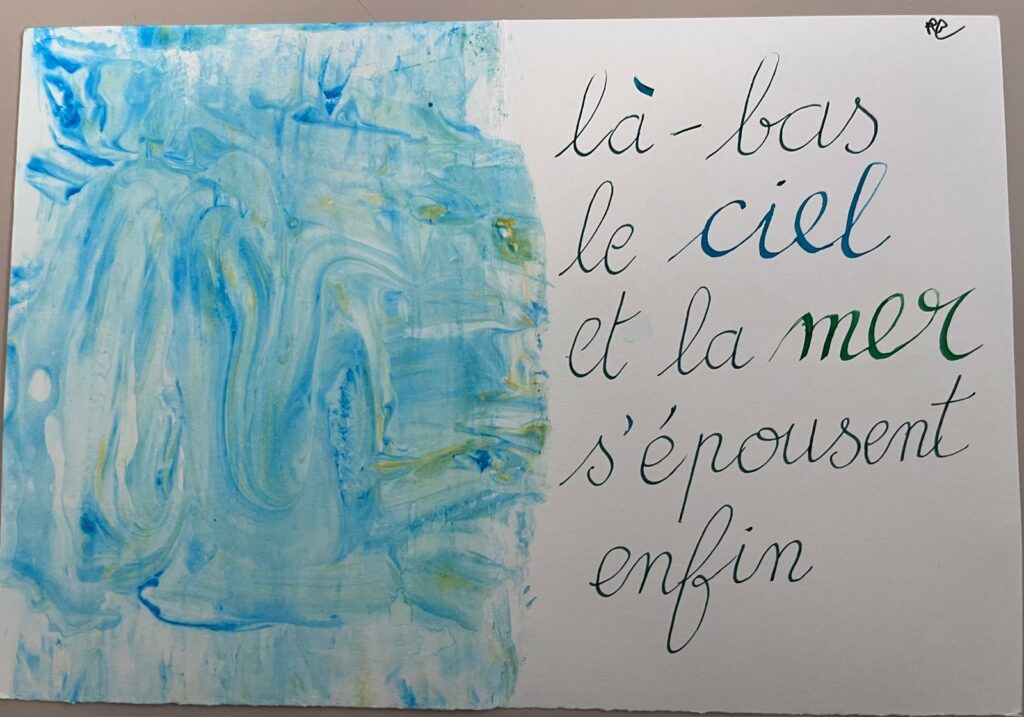 là-bas
le ciel
et la mer
s'épousent
enfin